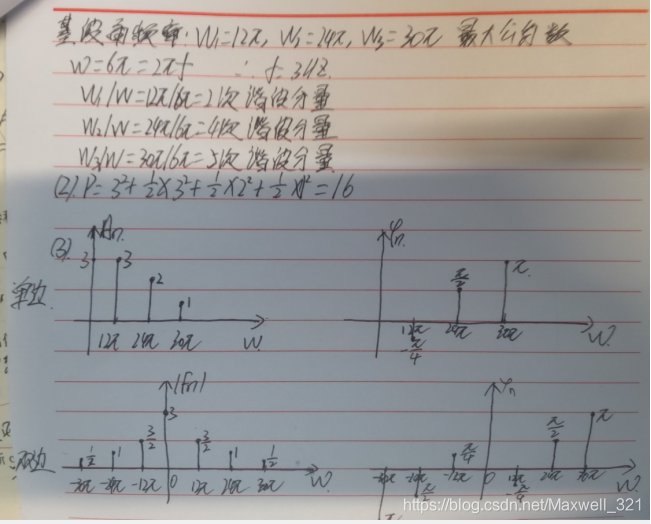 基波角频率: W₁=12π, W₂=24π, W₃=30π 最大公约数
W=6π=2πf ∴ f=3HZ.
W₁/W=12π/6π=2次谐波分量
W₂/W=24π/6π=4次谐波分量
W₃/W=30π/6π=5次谐波分量
(2). P=3²+½×3²+½×2²+½×1²=16
(3). An. φn.
3 3 2 1 π/2 π
单边
12π 24π 30π W. 12π 24π 30π W.
-π/4
|Fn| φn
3 π
双边 1/2 1 3/2 3/2 1 1/2 π/4 π/2
-30π -24π -12π 0 12π 24π 30π W. -30π -24π -12π 0 12π 24π 30π W.
-π/2 -π/4
https://blog.csdn.net/Maxwell_321